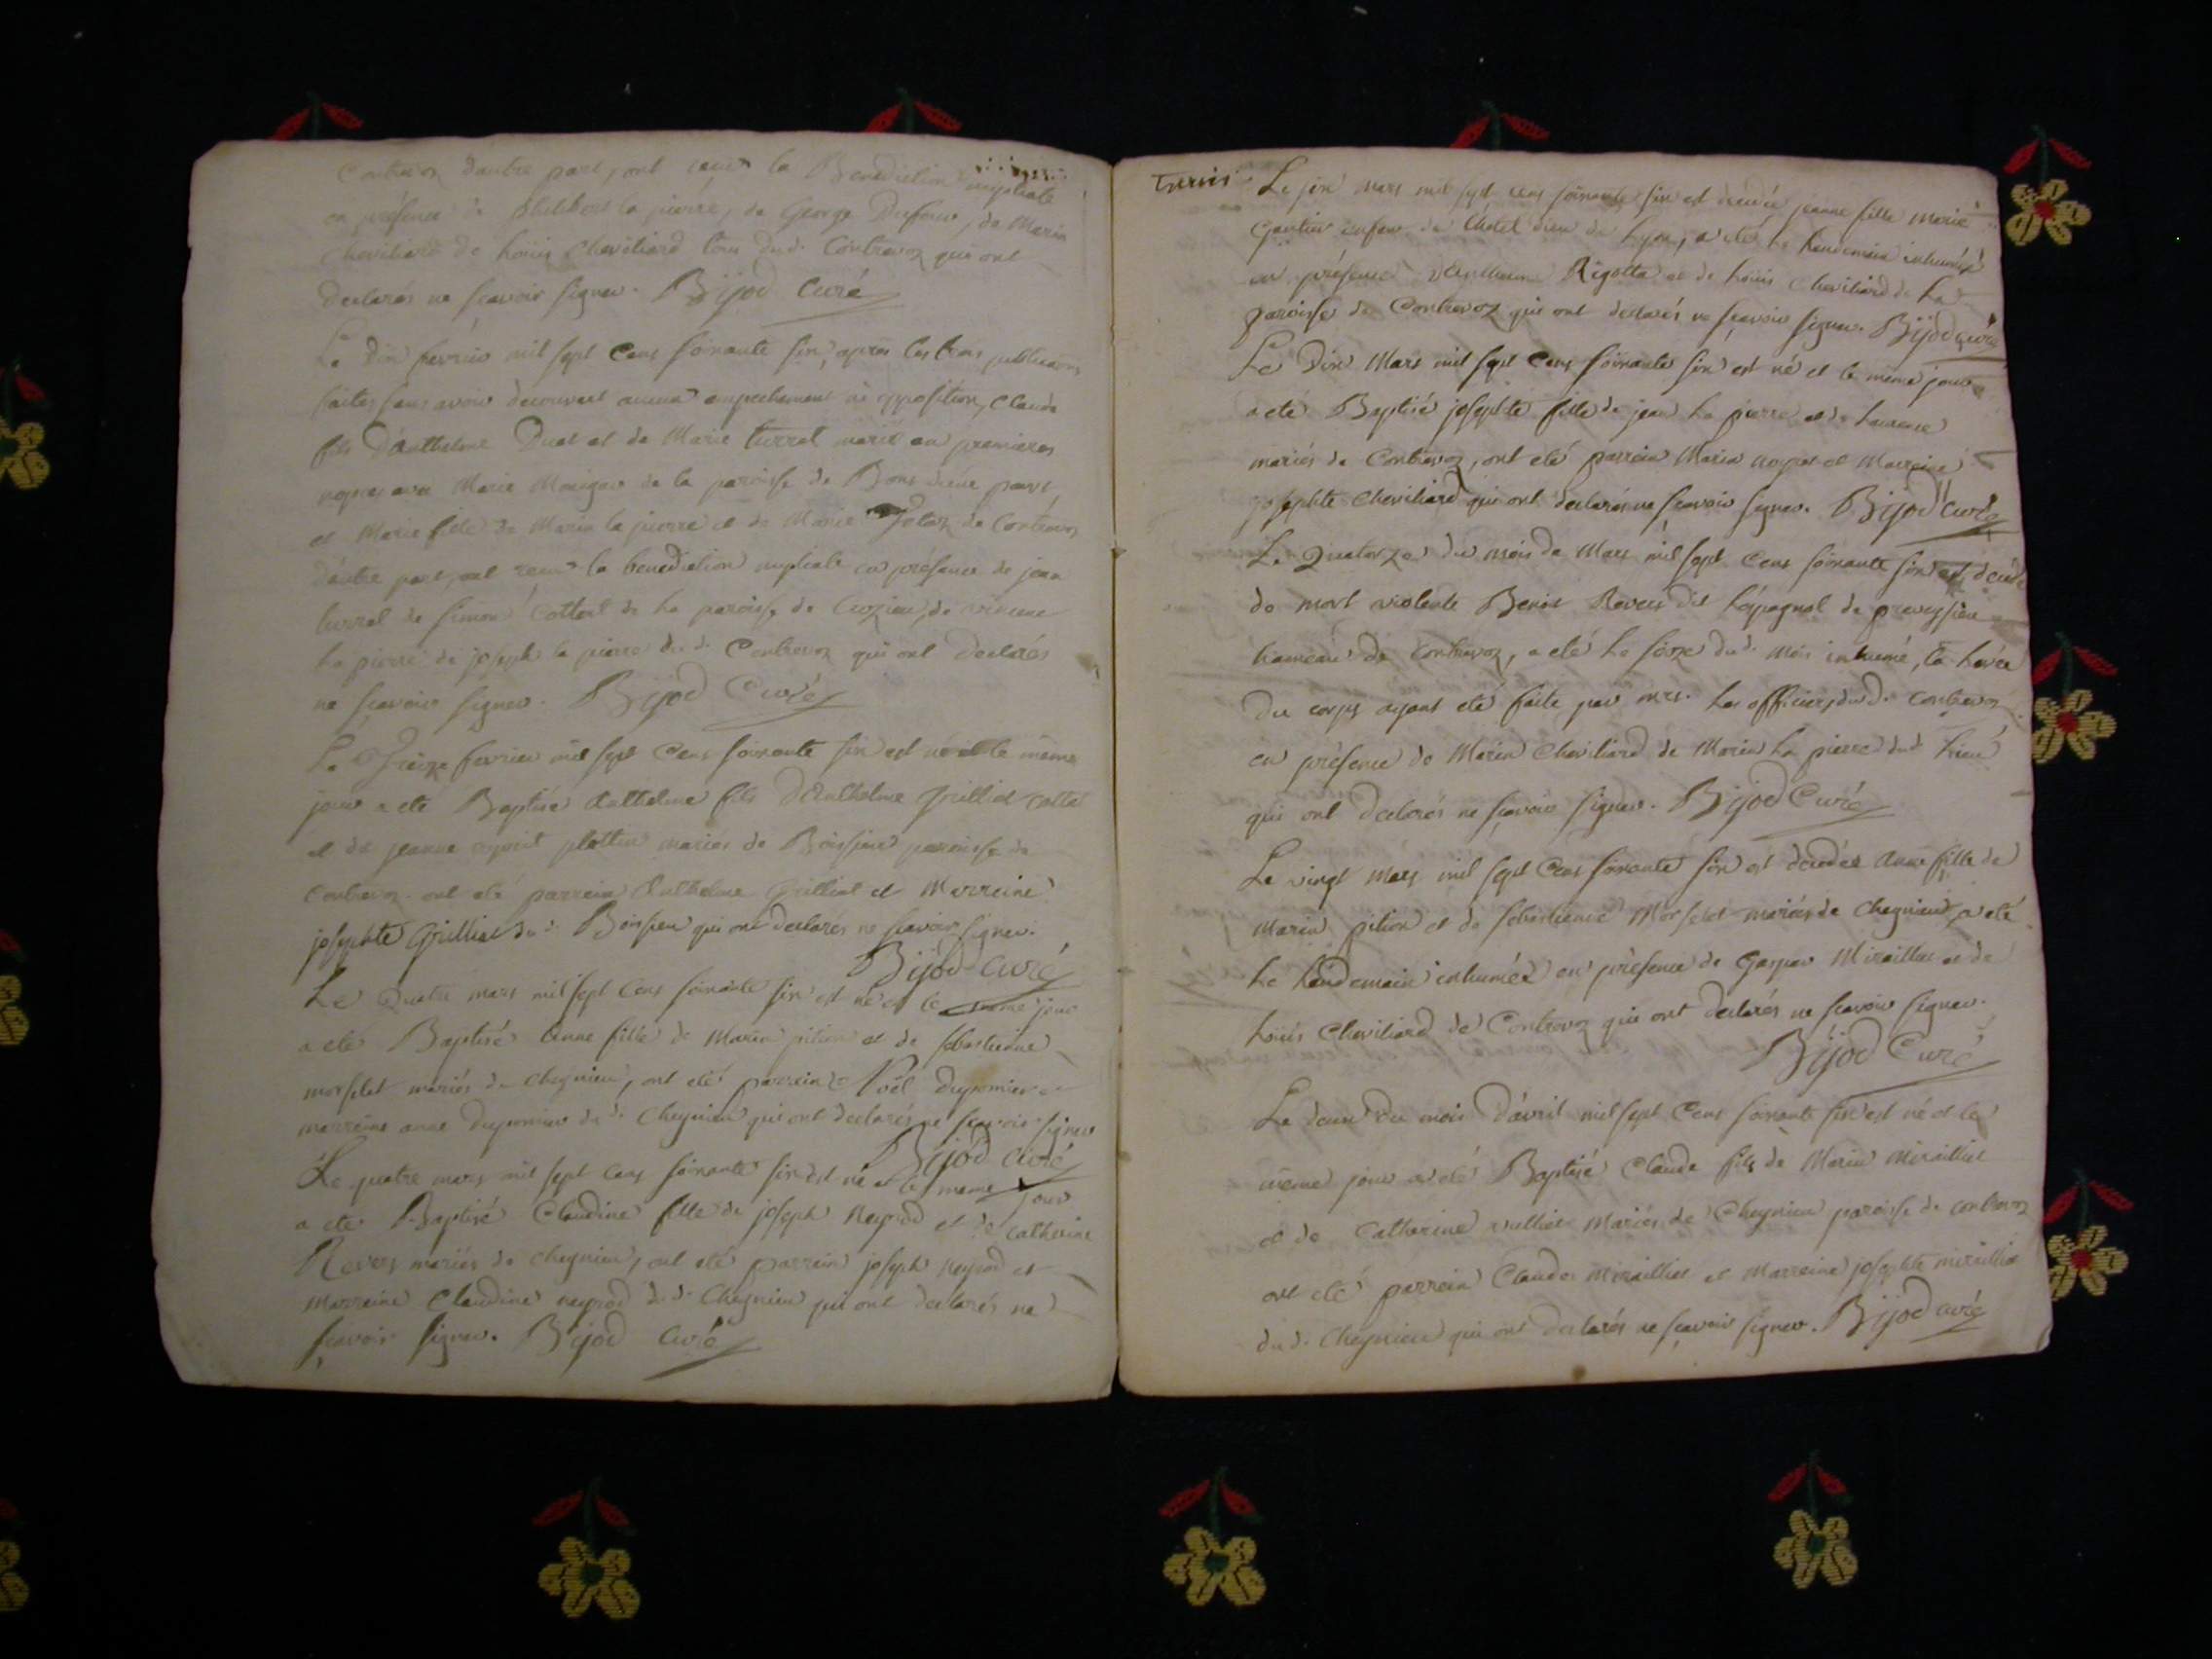 Contrevoz d'autre part, ont reçus la Benediction nuptiale
en présence de philibert la pierre, de George Dufour, de Marin
Cheviliard de Loüis Cheviliard tous dud. Contrevoz qui ont
declarés ne sçavoir signer. Bijod Curé
Le Dix fevrier mil sept Cens soixante six, après les trois publications
faites sans avoir decouvert aucun empechement ni opposition, Claude
fils D'Anthelme Duet et de Marie turrel marié en premieres
noces avec Marie de la paroisse de Bons d'une part
et Marie fille de Marin la pierre et de Marie de Contrevoz
d'autre part, ont reçus la benediction nuptiale en présence de jean
turrel de simon Cottet de la paroisse de Cuzieu, de vincent
La pierre de joseph la pierre dud. Contrevoz qui ont declarés
ne sçavoir signer. Bijod Curé
Le Treize fevrier mil sept Cens soixante six est né et le même
jour a eté Baptisé Anthelme fils D'Anthelme Grilliet Cotta
et de jeanne plottier mariés de Boissieu paroisse de
Contrevoz. ont eté parrein Anthelme Grilliet et Marreine
josephte Grilliet dud. Boissieu qui ont declarés ne sçavoir signer.
Bijod Curé
Le Quatre mars mil sept Cens soixante six est né et le même jour
a eté Baptisé Anne fille de Marin pition et de sebastienne
morselet mariés de Chegnieu, ont eté parrein Noël Dupomier
marreine anne Dupomier dud. Chegnieu qui ont declarés ne sçavoir signer
Bijod Curé
Le quatre mars mil sept Cens soixante six est né et le meme jour
a eté Baptisé Claudine fille de joseph Neyrod et de Catherine
Revers mariés de Chegnieu, ont eté parrein joseph neyrod et
Marreine Claudine neyrod dud. Chegnieu qui ont declarés ne
sçavoir signer. Bijod Curé
Le six mars mil sept cens soixante six est décedée jeanne fille Marie
Gautier enfant de L'hotel dieu de Lyon, a eté Le Lendemain inhumée
en présence D'Anthelme Rigotta et de Loüis Cheviliard de La
paroisse de Contrevoz qui ont declarés ne sçavoir signer. Bijod Curé
Le Dix Mars mil sept Cens soixante six est né et le meme jour
a eté Baptisé josephte fille de jean La pierre et de
mariés de Contrevoz, ont eté parrein Marin et Marreine
josephte Cheviliard qui ont declarés ne sçavoir signer. Bijod Curé
Le Quatorze du mois de Mars mil sept Cens soixante six est décedé
de mort violente Benoit Revers dit L'espagnol de preveyssieu
hameau de Contrevoz, a eté Le seize dud. mois inhumé, la Levée
du corps ayant eté faite par mrs. Les officiers dud. Contrevoz
en présence de Marin Cheviliard de Marin La pierre dud. Lieu
qui ont declarés ne sçavoir signer. Bijod Curé
Le vingt Mars mil sept Cens soixante six est décedée Anne fille de
Marin pition et de sebastienne Morselet mariés de Chegnieu, a eté
Le Lendemain inhumée en présence de Gaspar Mirailliet et de
Loüis Cheviliard de Contrevoz qui ont declarés ne sçavoir signer.
Bijod Curé
Le deux du mois d'avril mil sept Cens soixante six est né et le
même jour a eté Baptisé Claude fils de Marin Mirailliet
et de Catherine vulliet Mariés de Chegnieu paroisse de Contrevoz
ont eté parrein Claude Mirailliet et Marreine josephte mirailliet
dud. Chegnieu qui ont declarés ne sçavoir signer. Bijod Curé